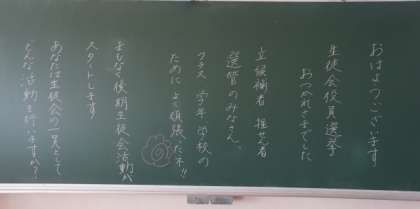 おはようございます
生徒会役員選挙
おつかれさまでした
立候補者 推薦者
選管のみなさん。
クラス 学年 学校の
ために よく頑張ったネ!!
まもなく後期生徒会活動が
スタートします
あなたは生徒会の一員として
どんな活動を行いますか?